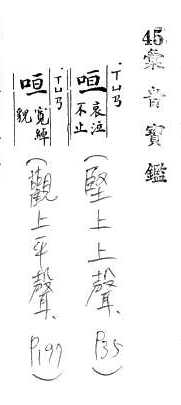 45彙音寶鑑
咺 ㄒㄩㄢ 哀泣不止 (堅上上聲、P35)
咺 ㄒㄩㄢ 寬綽貌 (觀上平聲、P199)